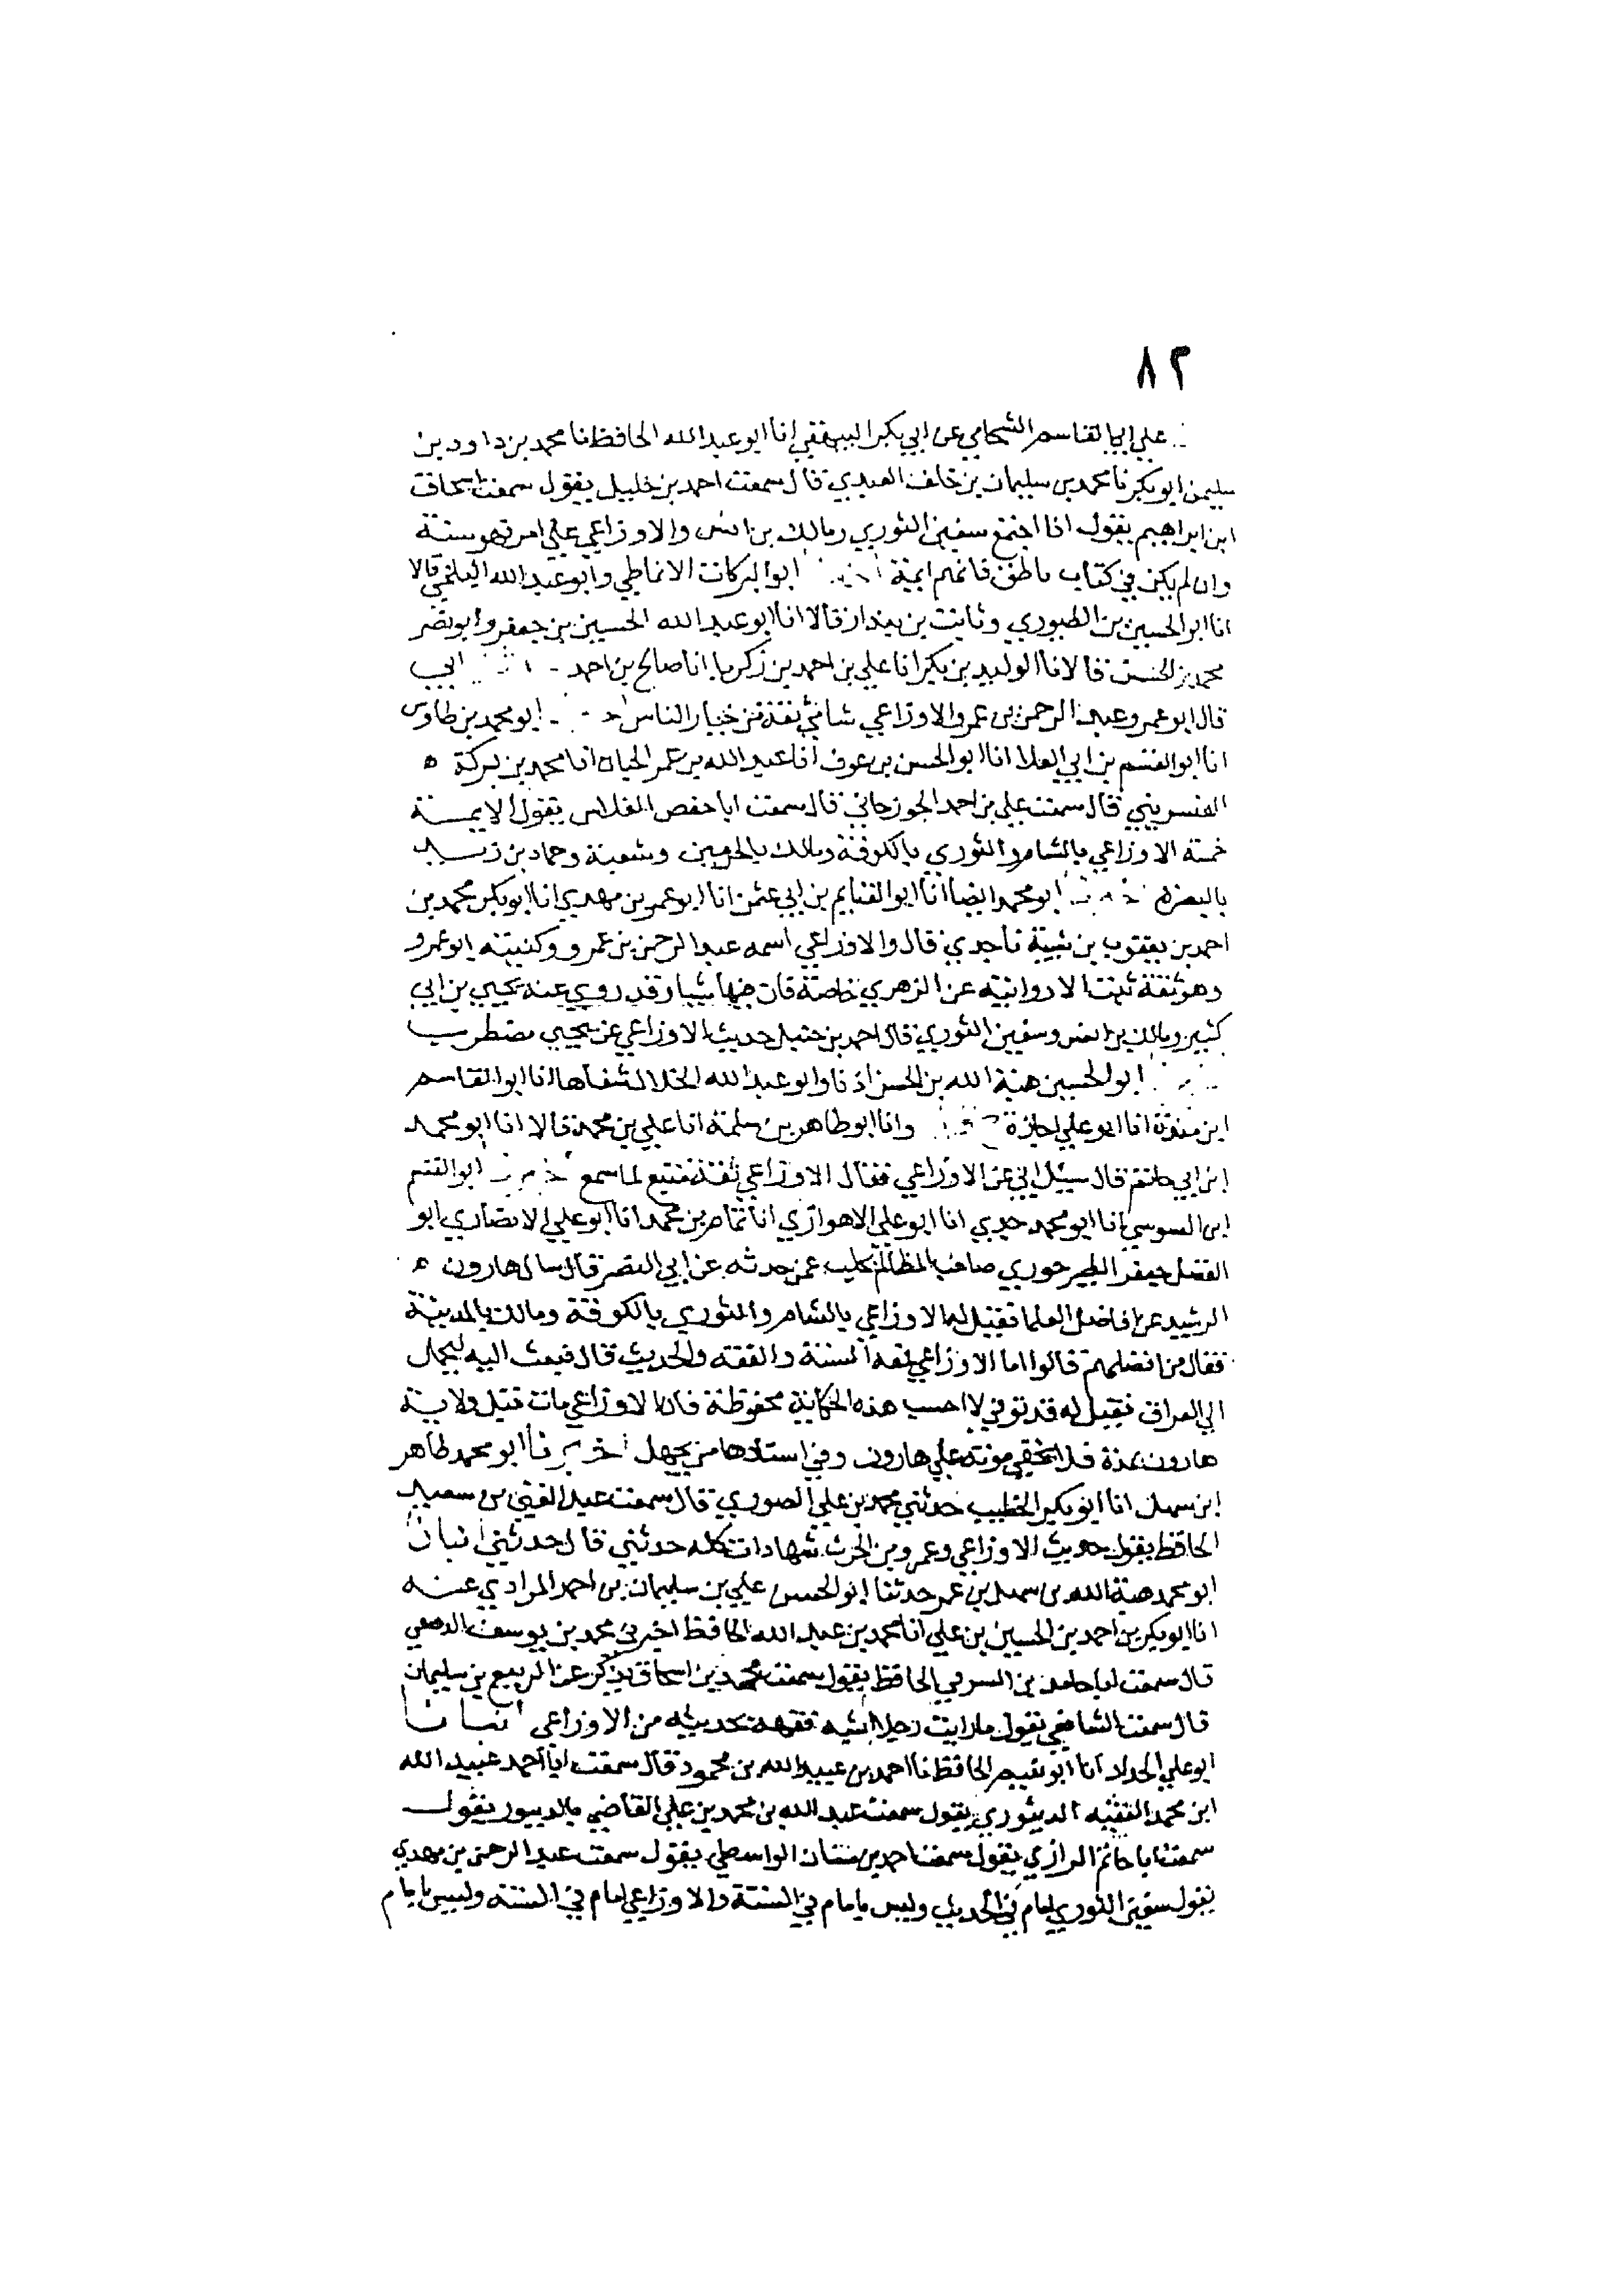 ٨٢
علي ابي القاسم الشحامي عن ابي بكر البيهقي انا ابو عبد الله الحافظ نا محمد بن داود بن
سليمن ابو بكر نا محمد بن سليمان بن خلف العبدي قال سمعت احمد بن خليل يقول سمعت اسحاق
ابن ابراهيم يقول اذا اجتمع سفين الثوري ومالك بن انس والاوزاعي علي امر فهو سنة
وان لم يكن في كتاب ناطق فانهم ايمة ابو البركات الانماطي وابو عبد الله البلخي قالا
انا ابو الحسين بن الطيوري وثابت بن بندار قالا انا ابو عبد الله الحسين بن جعفر وابو نصر
محمد بن الحسن قالا نا الوليد بن بكر انا علي بن احمد بن زكريا انا صالح بن احمد ابي
قال ابو عمرو عبد الرحمن بن عمرو الاوزاعي شامي ثقة من خيار الناس ابو محمد بن طاوس
انا ابو القسم بن ابي العلا انا ابو الحسن بن عوف انا عبد الله بن عمر انا محمد بن بركة ه
القنسريني قال سمعت علي بن احمد الجوزجاني قال سمعت ابا حفص الفلاس يقول الايمة
خمسة الاوزاعي بالشام والثوري بالكوفة ومالك بالحرمين وشعبة وحماد بن زيد
بالبصرة ابو محمد ايضا انا ابو الغنايم بن ابي عثمن انا ابو عمر بن مهدي انا ابو بكر محمد بن
احمد بن يعقوب بن شيبة نا جدي قال والاوزاعي اسمه عبد الرحمن بن عمرو وكنيته ابو عمرو
وهو ثقة ثبت الا روايته عن الزهري خاصة فان فيها شيا وقد روي عنه يحيي بن ابي
كثير ومالك بن انس وسفين الثوري قال احمد بن حنبل حديث الاوزاعي عن يحيي مضطرب
ابو الحسين هبة الله بن الحسن اذنا وابو عبد الله الخلال شفاها انا ابو القاسم
ابن مندة انا ابو علي اجازة ح وانا ابو طاهر بن سلمة انا علي بن محمد قالا انا ابو محمد
ابن ابي حاتم قال سيل ابي عن الاوزاعي فقال الاوزاعي ثقة متبع لما سمع ابو القسم
ابن السوسي انا ابو محمد جدي انا ابو علي الاهوازي انا تمام بن محمد انا ابو علي الانصاري ابو
الفضل جعفر صاحب المظالم عمن حدثه عن ابي النضر قال سال هارون ه
الرشيد عن افاضل العلما فقيل له الاوزاعي بالشام والثوري بالكوفة ومالك بالمدينة
فقال من افضلهم قالوا اما الاوزاعي السنة والفقه والحديث قال فبعث اليه ليحمل
الي العراق فقيل له قد توفي لا احسب هذه الحكاية محفوظة فان الاوزاعي مات قبل ولاية
هارون بمدة فلا تخفي موته علي هارون وفي اسنادها من يجهل اخبرنا ابو محمد طاهر
ابن سهل انا ابو بكر الخطيب حدثني محمد بن علي الصوري قال سمعت عبد الغني بن سعيد
الحافظ يقول حديث الاوزاعي وعمرو بن الحرث شهادات كله حدثني قال حدثني انبانا
ابو محمد هبة الله بن سهل بن عمر حدثنا ابو الحسن علي بن سليمان بن احمد المرادي عنه
انا ابو بكر بن احمد بن الحسين بن علي انا محمد بن عبد الله الحافظ اخبرني محمد بن يوسف
قال سمعت ابا حامد بن الحافظ يقول سمعت محمد بن اسحاق يذكر عن الربيع بن سليمان
قال سمعت الشافعي يقول ما رايت رجلا اشبه فقهه بحديثه من الاوزاعي انبانا
ابو علي الحداد انا ابو نعيم الحافظ نا احمد بن عبيد الله بن محمود قال سمعت ابا احمد عبيد الله
ابن محمد الفقيه الدينوري يقول سمعت عبد الله بن محمد بن علي القاضي بالدينور يقول
سمعت ابا حاتم الرازي يقول سمعت احمد بن سنان الواسطي يقول سمعت عبد الرحمن بن مهدي
يقول سفين الثوري امام في الحديث وليس بامام في السنة والاوزاعي امام في السنة وليس بامام